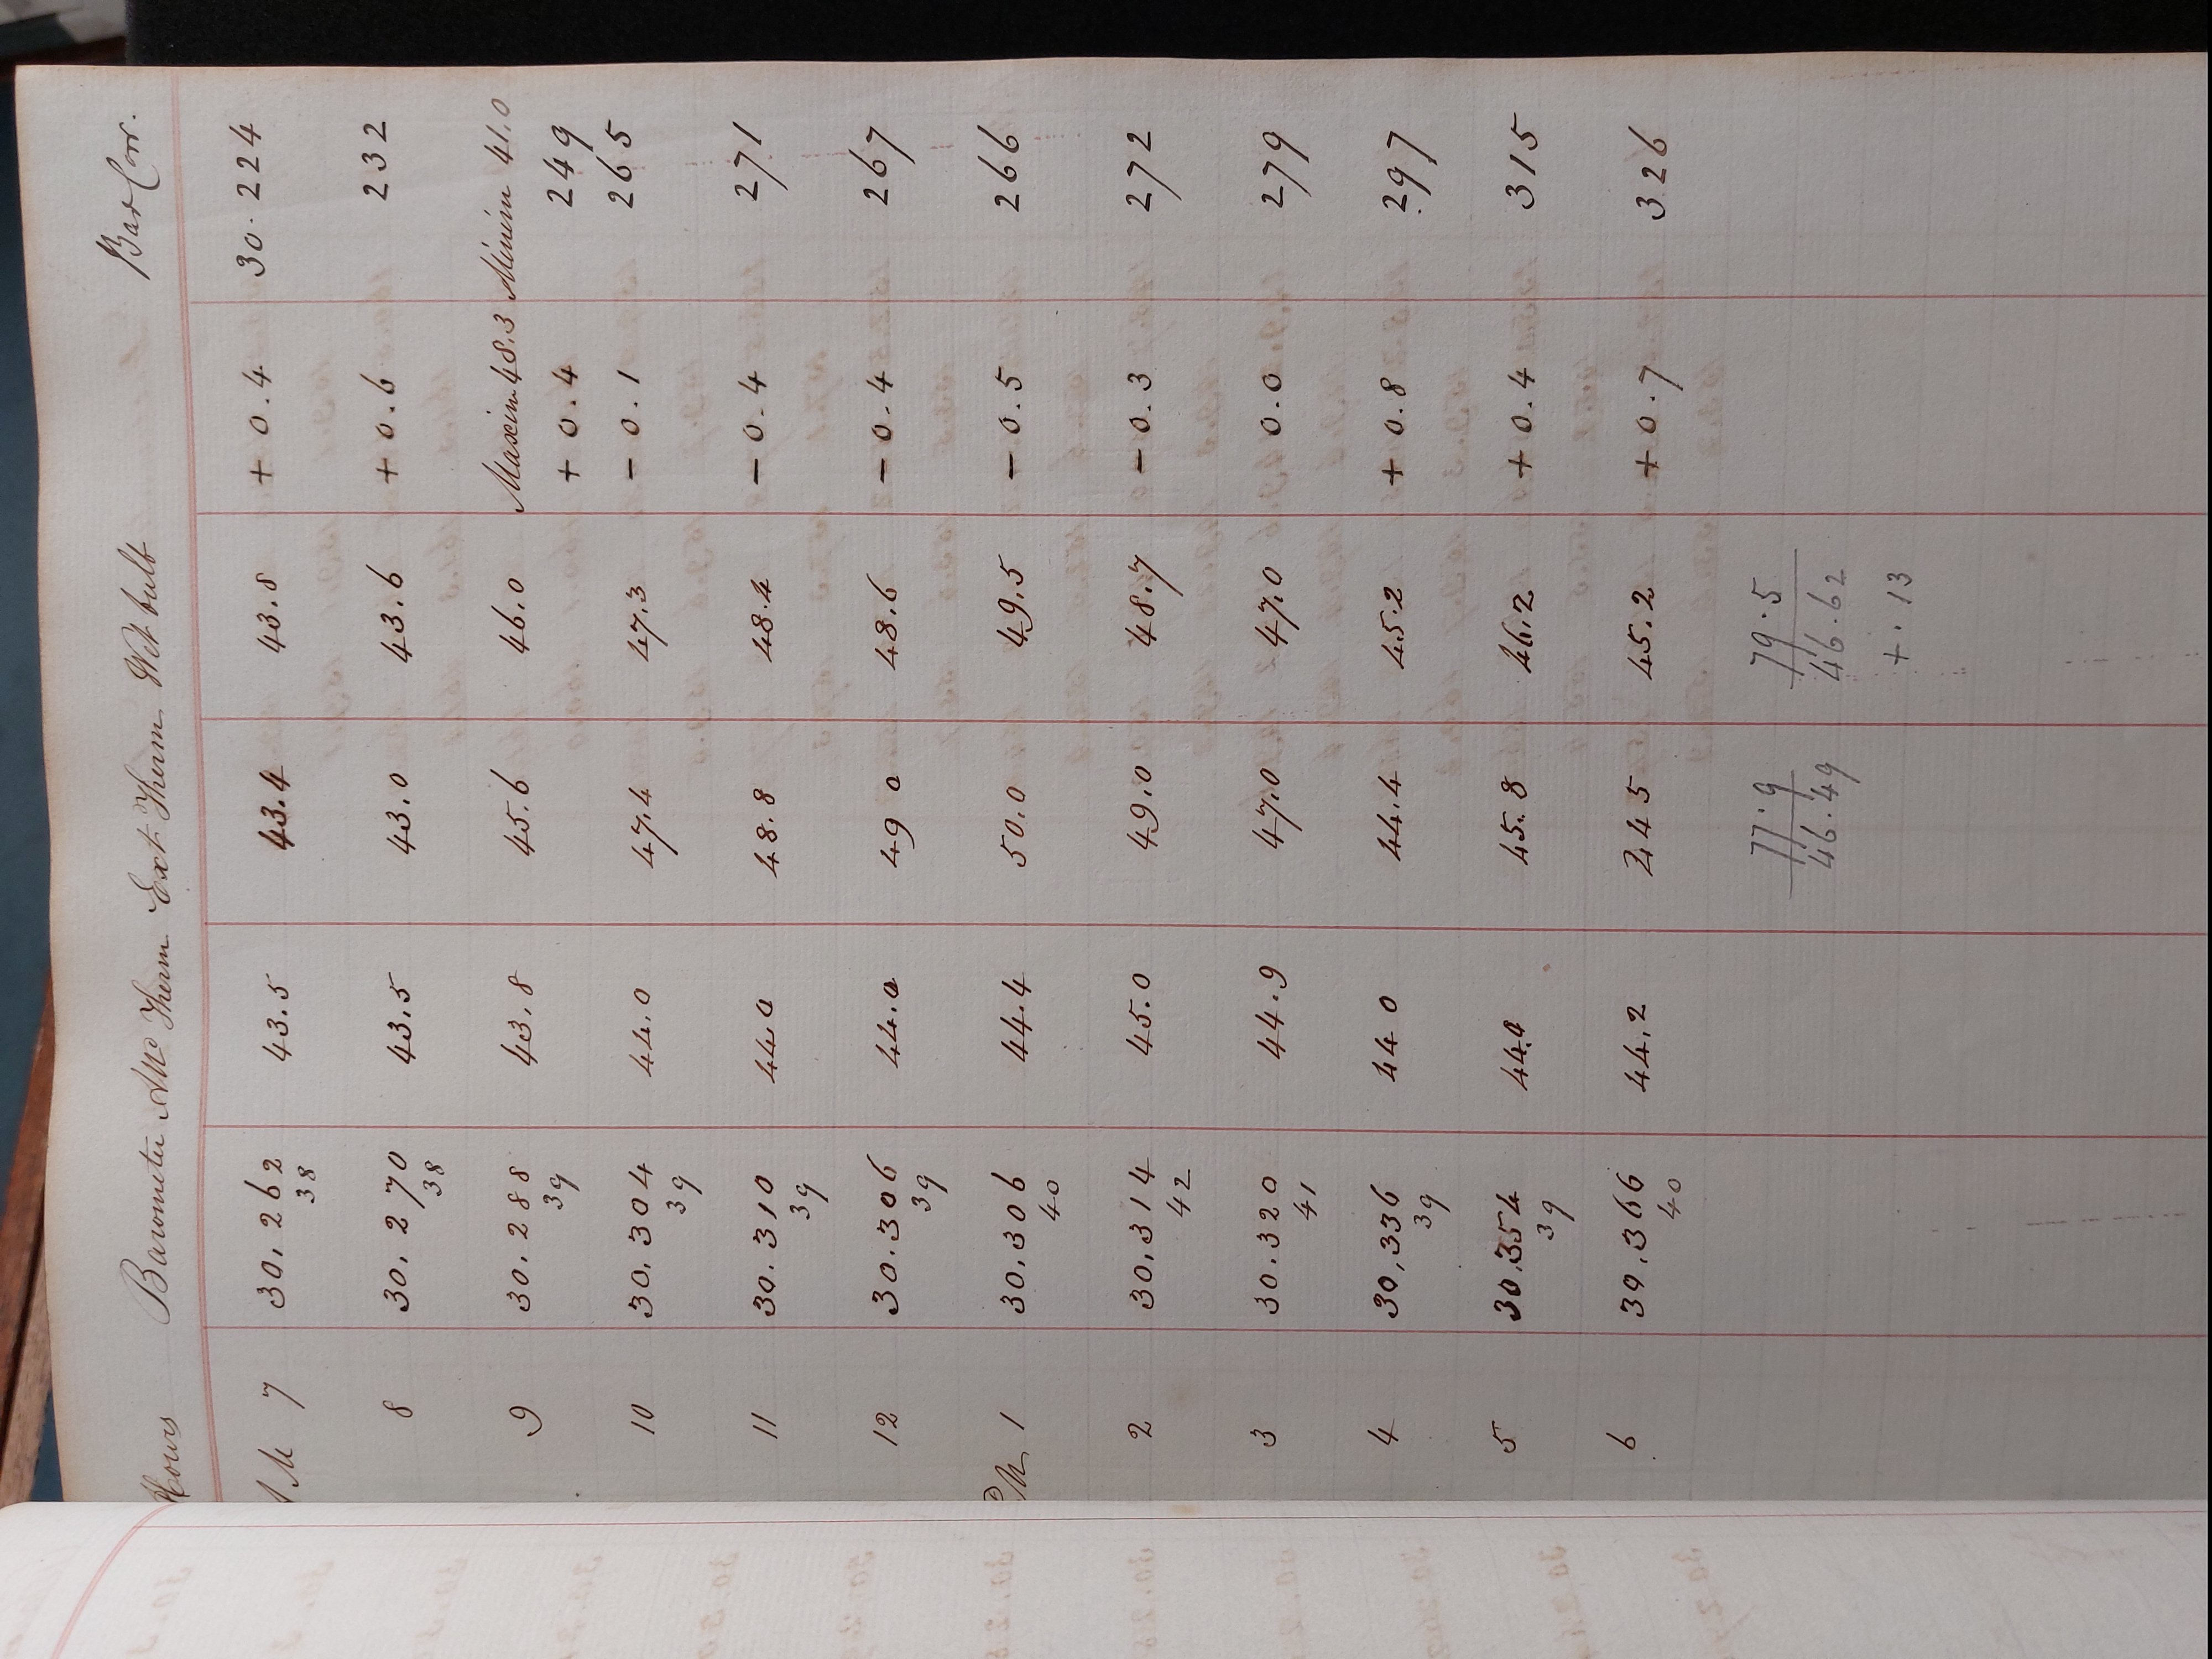 Hours Barometer Attd Therm Ext Therm Wet bulb Bar Corr.
AM 7 30.262 43.5 43.4 43.8 + 0.4 30.224
38
8 30.270 43.5 43.0 43.6 + 0.6 232
38
9 30.288 43.8 45.6 46.0 Maxim 48.3 Minim 41.0
39 + 0.4 249
10 30.304 44.0 47.4 47.3 - 0.1 265
39
11 30.310 44.0 48.8 48.4 - 0.4 271
39
12 30.306 44.0 49 0 48.6 - 0.4 267
39
PM 1 30.306 44.4 50.0 49.5 - 0.5 266
40
2 30.314 45.0 49.0 48.7 - 0.3 272
42
3 30.320 44.9 47.0 47.0 0.0 279
41
4 30,336 44 0 44.4 45.2 + 0.8 297
39
5 30.354 44.0 45.8 46.2 + 0.4 315
39
6 30.366 44.2 44 5 45.2 + 0.7 326
40
77.9 79.5
46.49 46.62
+ .13